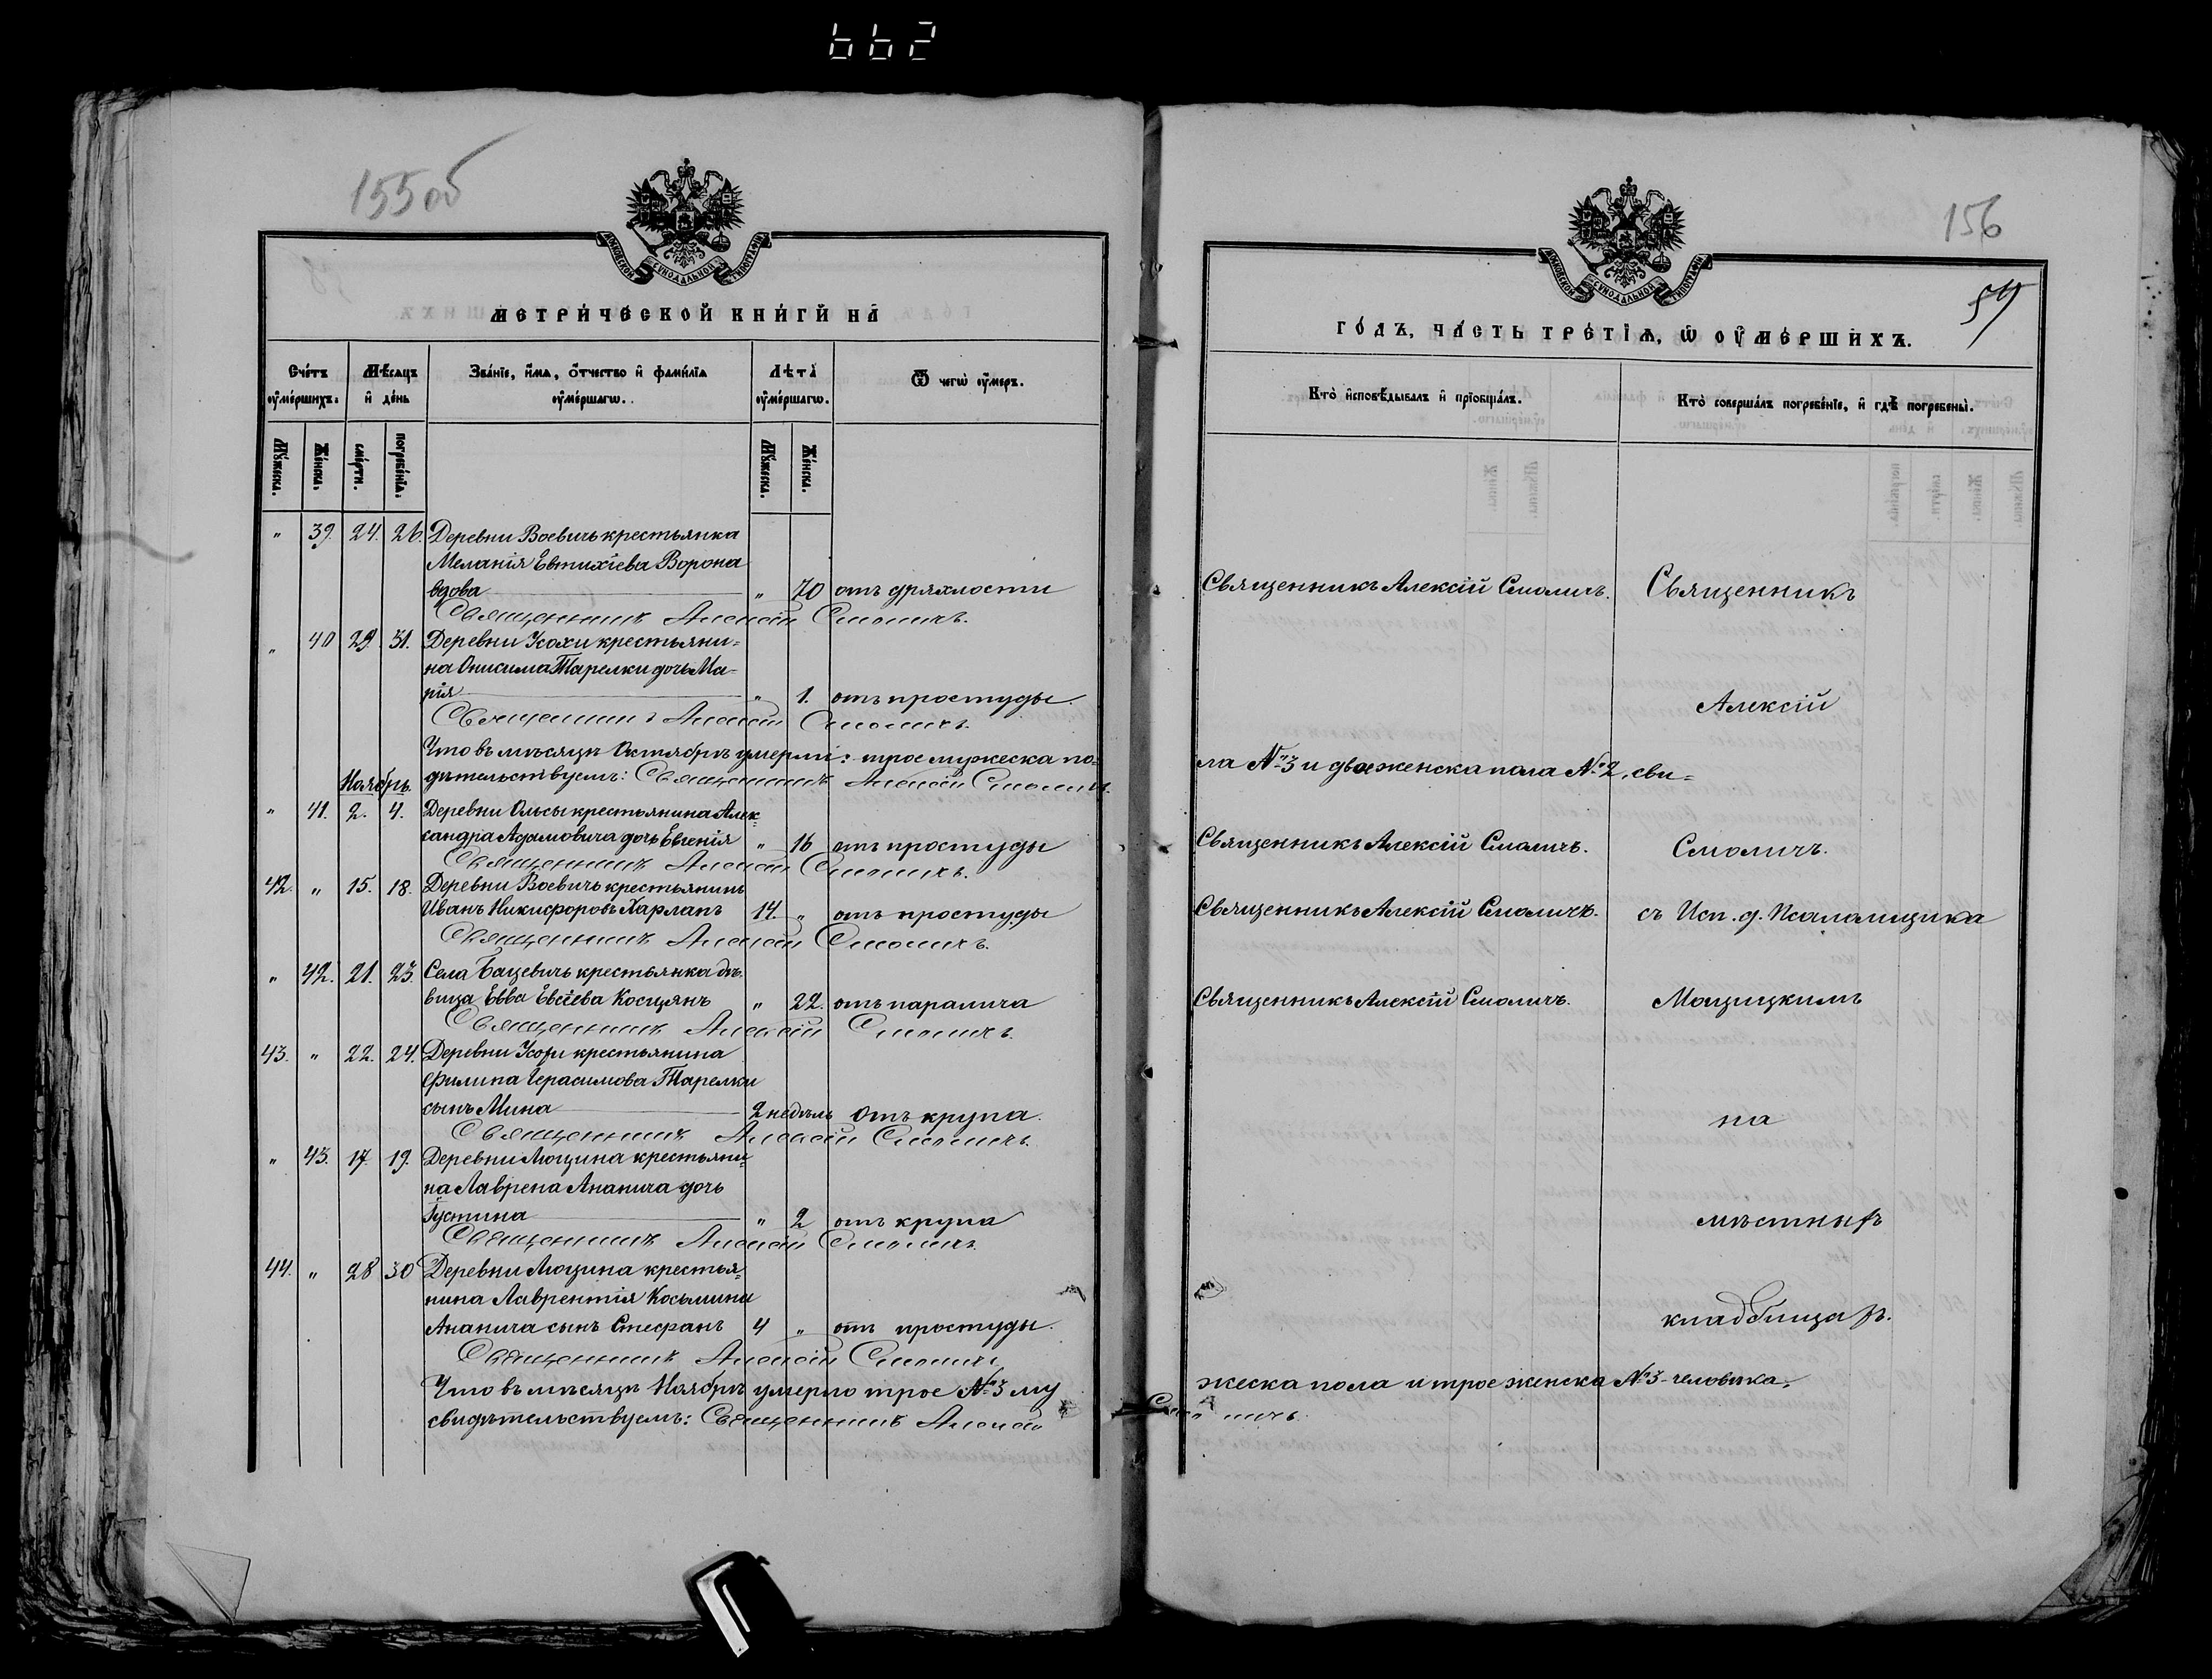 662
155 об
МОСКОВСКОЙ СѴНОДАЛЬНОЙ ТИПОГРАФІИ
МЕТРИ́ЧЕСКОЙ КНИ́ГИ НА
Сче́тъ ᲂу҆ме́ршихъ.
Мѣ́сяцъ и҆ де́нь
Зва́нїе, и҆́мѧ, ѻ҆́тчество и҆ фамилїѧ ᲂу҆ме́ршагѡ.
Лѣта̀ ᲂу҆ме́ршагѡ.
Ѿ чегѡ̀ ᲂу҆́меръ.
Мꙋ́жеска.
Же́нска.
сме́рти.
погребе́нїѧ.
Мꙋ́жеска.
Же́нска.
„ 39. 24. 26. Деревни Воевичъ крестьянка
Меланія Евтихіева Ворона
вдова „ 70 отъ дряхлости
Священникъ Алексій Смоличъ.
„ 40 29 31. Деревни Усохи крестьяни=
на Онисима Тарелки дочь Ма-
рія „ 1. отъ простуды.
Священникъ Алексій Смоличъ.
Что въ мѣсяцѣ Октябрѣ умерли: трое мужеска по=
Ноябрь. дѣтельствуемъ: Священникъ Алексій Смоличъ.
„ 41. 2. 4. Деревни Ольсы крестьянина Алек=
сандра Адамовича дочь Евгенія „ 16 отъ простуды
Священникъ Алексій Смоличъ.
42. „ 15. 18. Деревни Воевичъ крестьянинъ
Иванъ Никифоровъ Харлапъ 14. „ отъ простуды
Священникъ Алексій Смоличъ.
„ 42. 21. 23. Села Бацевичъ крестьянка дѣ-
вица Евва Евсѣева Косцянъ „ 22. отъ паралича
Священникъ Алексій Смоличъ.
43. „ 22. 24. Деревни Усохи крестьянина
Филипа Герасимова Тарелки
сынъ Мина 2 недѣль отъ крупа.
Священникъ Алексій Смоличъ.
„ 43. 17. 19. Деревни Лющина крестьяни=
на Лаврена Ананича дочь
Іустина „ 2 отъ крупа
Священникъ Алексій Смоличъ.
44. „ 28 30 Деревни Лющина крестья=
нина Лаврентія Косьмина
Ананича сынъ Стефанъ 4 „ отъ простуды.
Священникъ Алексій Смоличъ.
Что въ мѣсяцѣ Ноябрѣ умерло трое №3 му
свидѣтельствуемъ: Священникъ Алексій
156
59
МОСКОВСКОЙ СѴНОДАЛЬНОЙ ТИПОГРАФІИ
ГО́ДЪ, ЧА́СТЬ ТРЕ́ТЇѦ, Ѡ҆ ОУ҆МЕ́РШИХЪ.
Кто̀ и҆сповѣ́дывалъ и҆ прїобща́лъ.
Кто̀ соверша́лъ погребе́нїе, и҆ гдѣ̀ погребены̀.
Священникъ Алексій Смоличъ. Священникъ
Алексій
ла №3 и двое женска пола №2, сви=
Священникъ Алексій Смоличъ. Смоличъ.
Священникъ Алексій Смоличъ. съ Исп. д. Псаломщика
Священникъ Алексій Смоличъ. Мощицкимъ
на
мѣстныхъ
кладбищахъ.
жеска пола и трое женска №3 человѣка,
Смоличъ.